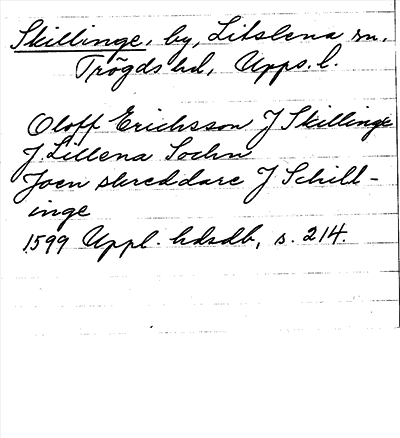 Skillinge, by, Litslena sn,
Trögds hd, Upps. l.
Oloff Erichsson J Skillinge
J Lillena Sochn
Joen skreddare J Schill-
inge
1599 Uppl. hdsdb, s. 214.